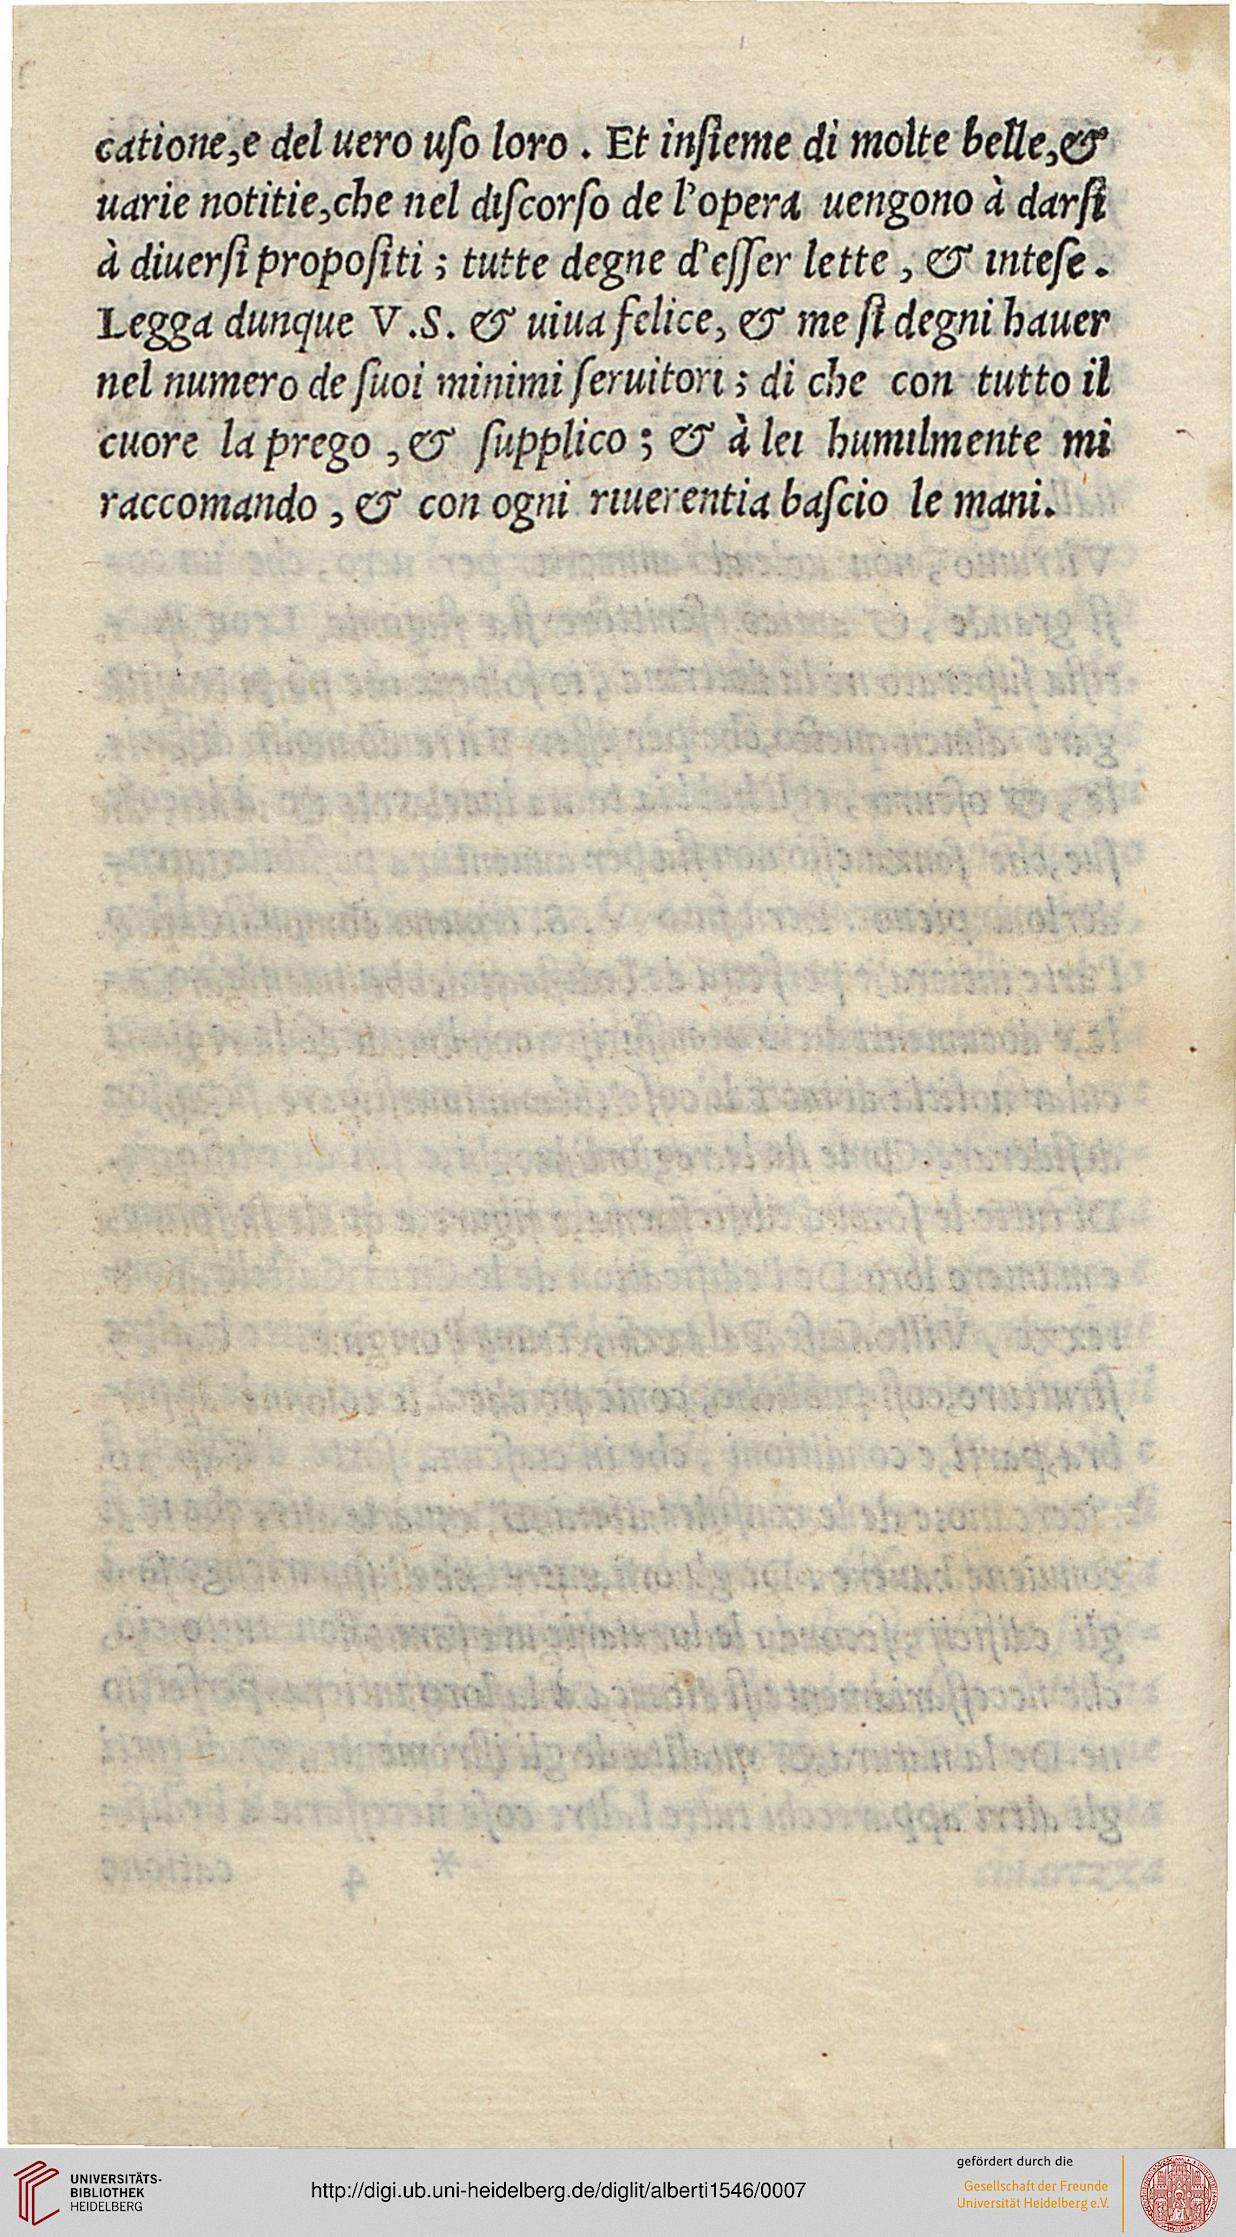 catione,e del uero uſo loro . Et inſieme di molte belle,&
uarie notitie,che nel diſcorſo de l'opera uengono à darſi
à diuerſi propoſiti ; tutte degne d'eſſer lette , & inteſe .
Legga dunque V .S. & uiua felice, & me ſi degni hauer
nel numero de ſuoi minimi ſeruitori ; di che con tutto il
cuore la prego , & ſupplico ; & à lei humilmente mi
raccomando , & con ogni riuerentia baſcio le mani.
UNIVERSITÄTS-
BIBLIOTHEK
HEIDELBERG
http://digi.ub.uni-heidelberg.de/diglit/alberti1546/0007
gefördert durch die
Gesellschaft der Freunde
Universität Heidelberg e.V.